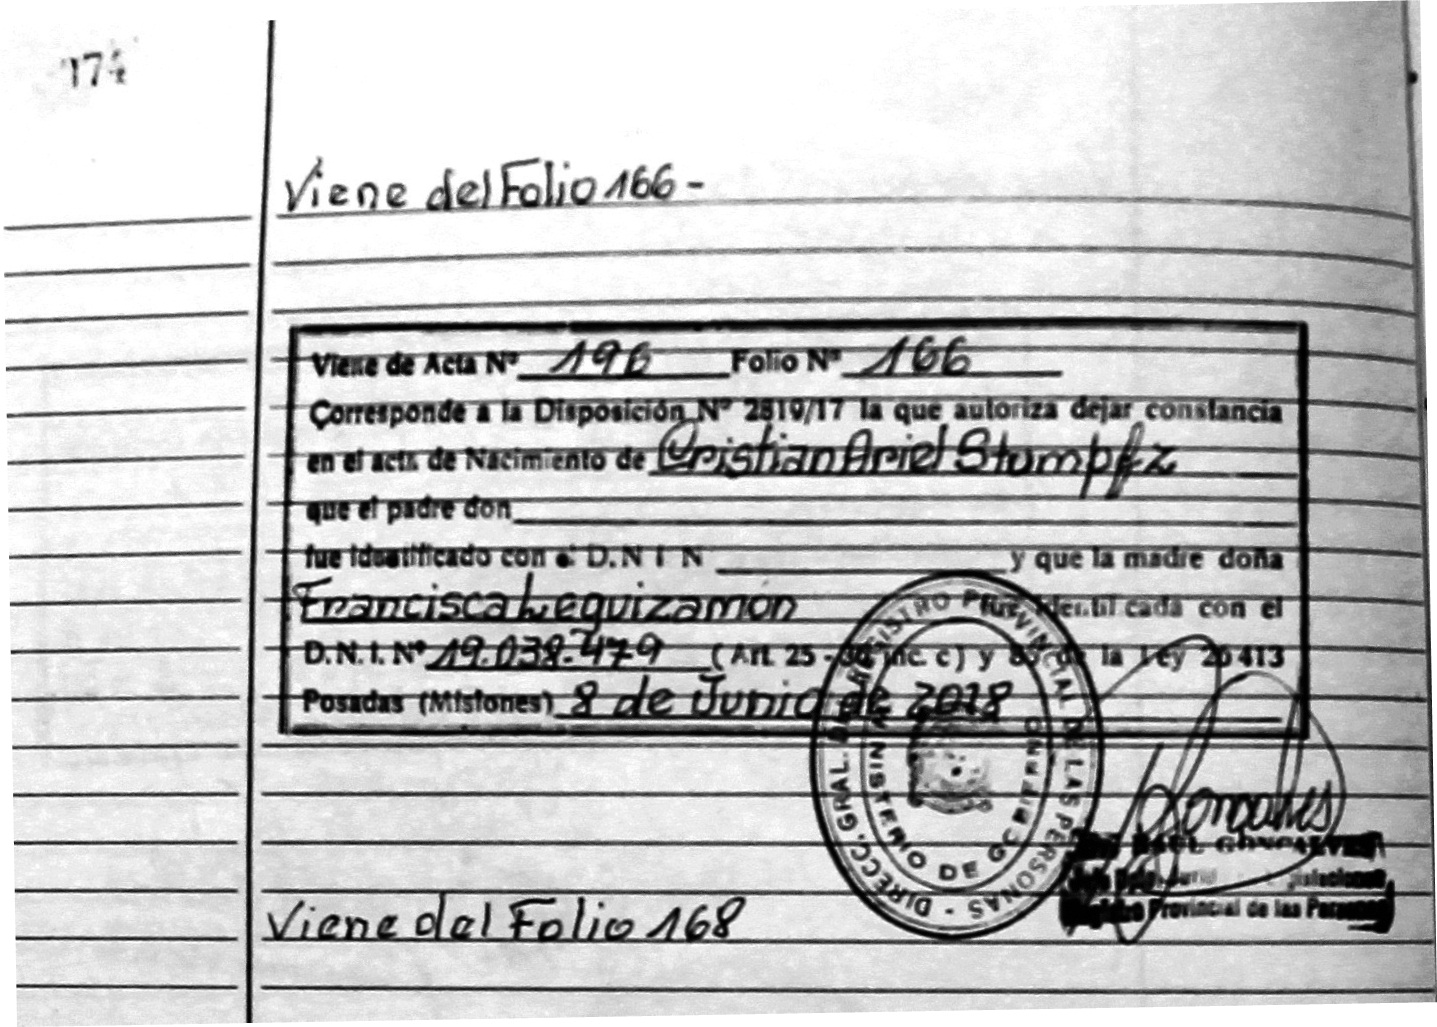 Viene del Folio 166 -
Viene de Acta Nº 196 Folio Nº 166
Corresponde a la Disposición Nº 2819/17 la que autoriza dejar constancia
en el acta de Nacimiento de Cristian Ariel Stumpfz
que el padre don
fue identificado con el D.N I N y que la madre doña
Francisca Leguizamón fue identificada con el
D.N.I. Nº 19.038.479 (Art. 25 - 36 inc. c) y de la Ley 26413
Posadas (Misiones) 8 de Junio de 2018
DIRECC. GRAL. DE REGISTRO PROVINCIAL DE LAS PERSONAS -
MINISTERIO DE GOBIERNO
RAUL GONCALVES
Registro Provincial de las Personas
Viene del Folio 168